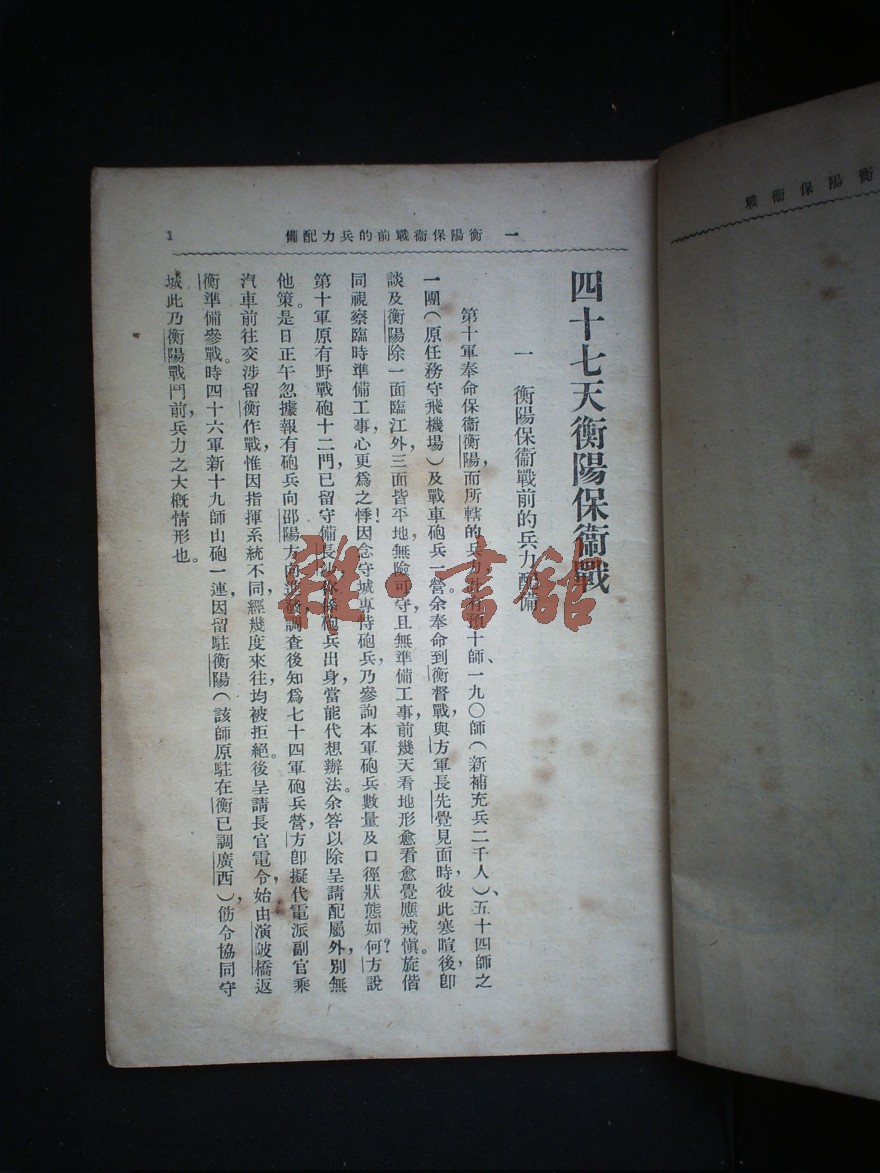 衡陽保衞戰
一 衡陽保衞戰前的兵力配備
1
四十七天衡陽保衞戰
一 衡陽保衞戰前的兵力配備
第十軍奉命保衞衡陽，而所轄的兵力 預十師、一九〇師（新補充兵二千人）、五十四師之
一團（原任務守飛機場）及戰車砲兵一營。余奉命到衡督戰，與方軍長先覺見面時，彼此寒喧後，卽
談及衡陽除一面臨江外，三面皆平地，無險可守，且無準備工事，前幾天看地形愈看愈覺應戒愼。旋偕
同視察臨時準備工事，心更爲之悸！因念守城專恃砲兵，乃參詢本軍砲兵數量及口徑狀態如何？方說
第十軍原有野戰砲十二門，已留守備長沙， 係砲兵出身，當能代想辦法。余答以除呈請配屬外，別無
他策。是日正午忽據報有砲兵向邵陽方向 調查後知爲七十四軍砲兵營，方卽擬代電派副官乘
汽車前往交涉留衡作戰，惟因指揮系統不同，經幾度來往，均被拒絕。後呈請長官電令，始由演陂橋返
衡準備參戰。時四十六軍新十九師山砲一連，因留駐衡陽（該師原駐在衡已調廣西），仿令協同守
城，此乃衡陽戰鬥前，兵力之大槪情形也。
雜·書館